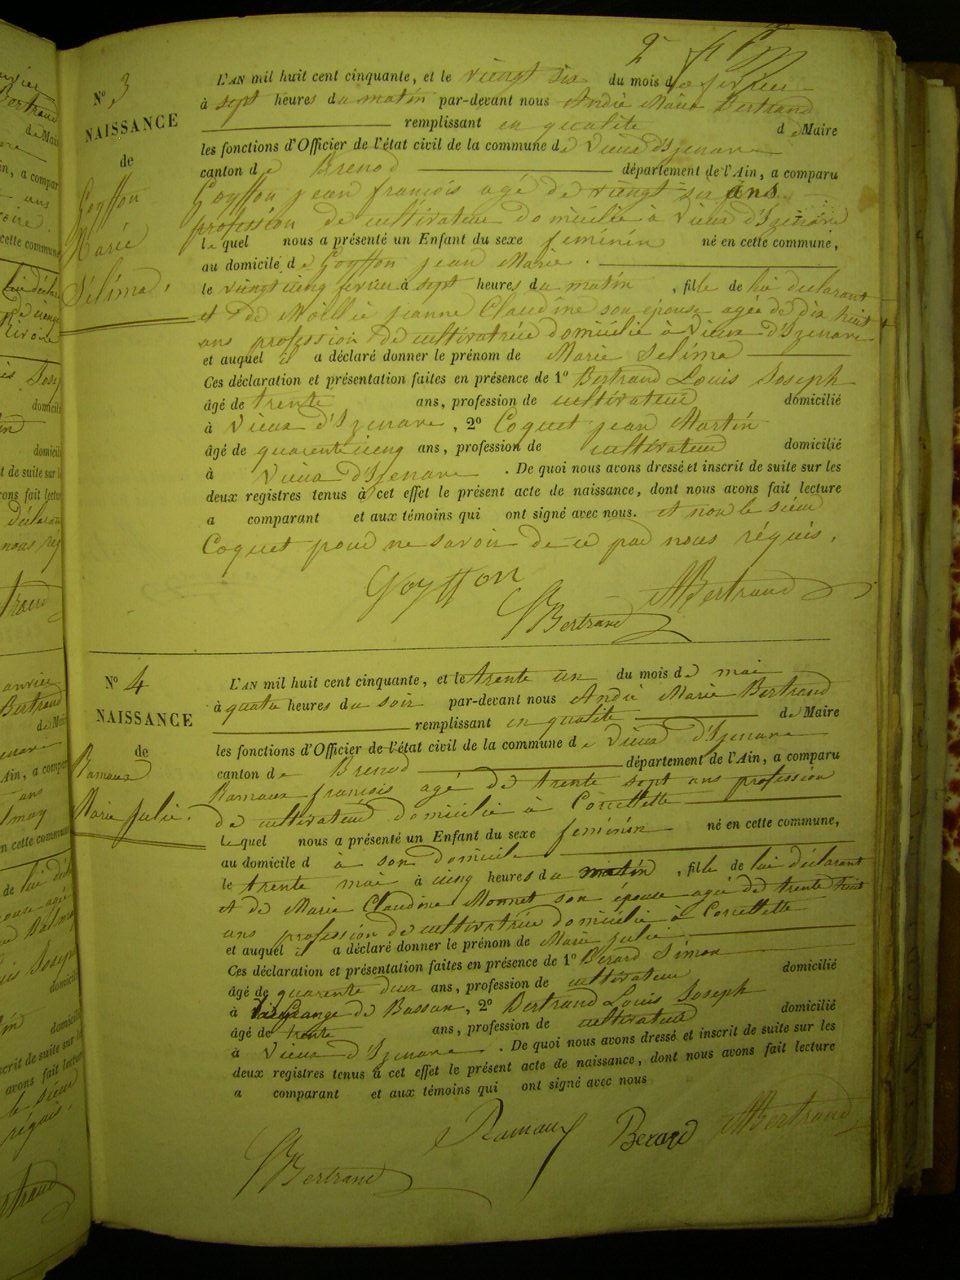 N° 3
NAISSANCE
de
Goyffon
Marie
Sélima
L'AN mil huit cent cinquante, et le vuingt six du mois de fevrier
à sept heures du matin par-devant nous André Marie Bertrand
remplissant en qualité de Maire
les fonctions d'Officier de l'état civil de la commune de Vieux d'Izenave
canton de Brenod département de l'Ain, a comparu
Goyffon jean françois agé de vuingt six ans
profession de cultivateur domicilié à Vieux d'Izenave
lequel nous a présenté un Enfant du sexe feminin né en cette commune,
au domicile de Goyffon jean Marie.
le vuingt cinq fevrier à sept heures du matin, fille de lui déclarant
et de jeanne Claudine son épouse agée de dix huit
ans profession de cultivatrice domicilié à Vieux d'Izenave
et auquel il a déclaré donner le prénom de Marie Selima
Ces déclaration et présentation faites en présence de 1° Bertrand Louis Joseph
âgé de trente ans, profession de cultivateur domicilié
à Vieux d'Izenave, 2° Coquet jean Martin
âgé de quarente cinq ans, profession de cultivateur domicilié
à Vieux d'Izenave. De quoi nous avons dressé et inscrit de suite sur les
deux registres tenus à cet effet le présent acte de naissance, dont nous avons fait lecture
a comparant et aux témoins qui ont signé avec nous. et non le sieur
Coquet pour ne savoir de ce par nous réquis.
Goyffon
LBertrand
AMBertrand
N° 4
NAISSANCE
de
Ramaux
Marie julie.
L'AN mil huit cent cinquante, et le trente un du mois de mai
à quatre heures du soir par-devant nous André Marie Bertrand
remplissant en qualité de Maire
les fonctions d'Officier de l'état civil de la commune de Vieux d'Izenave
canton de Brenod département de l'Ain, a comparu
Ramaux françois agé de trente sept ans profession
de cultivateur domicilié à Corcelette
lequel nous a présenté un Enfant du sexe feminin né en cette commune,
au domicile d à son domicile
le trente mai à cinq heures du matin, fille de lui déclarant
et de Marie Claudine Monnet son épouse agée de trente huit
ans profession de cultivatrice domicilié à Corcellette
et auquel il a déclaré donner le prénom de Marie julie
Ces déclaration et présentation faites en présence de 1° Berard Simon
âgé de quarente deux ans, profession de cultivateur domicilié
à la Grange de Bassan, 2° Bertrand Louis Joseph
âgé de trente ans, profession de cultivateur domicilié
à Vieux d'Izenave. De quoi nous avons dressé et inscrit de suite sur les
deux registres tenus à cet effet le présent acte de naissance, dont nous avons fait lecture
a comparant et aux témoins qui ont signé avec nous
Ramaux Berard AMBertrand
LBertrand